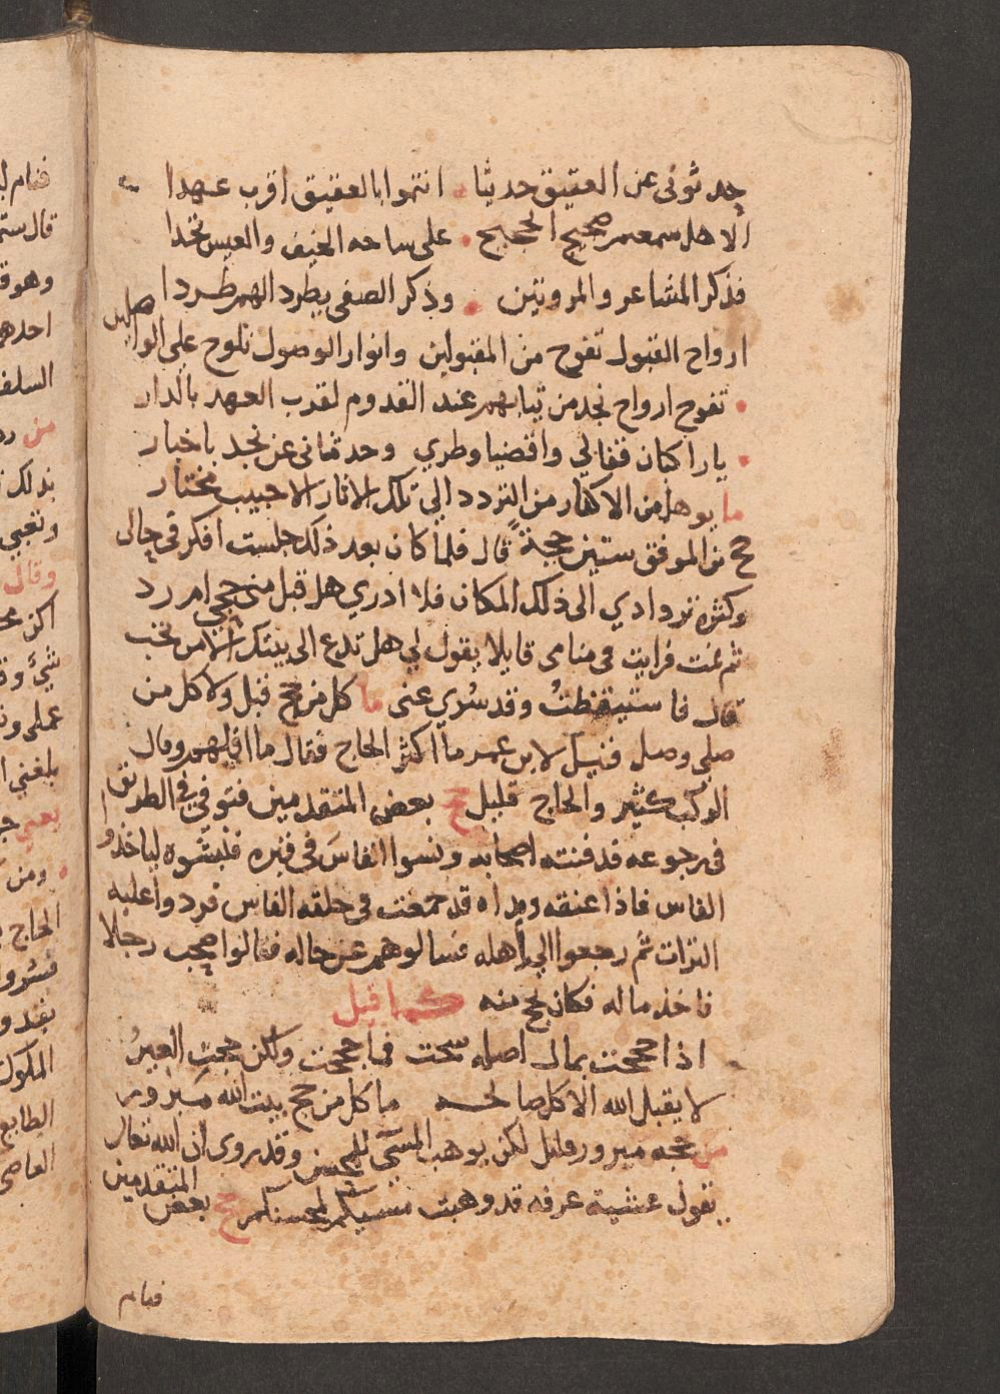 حدثونى عن العقيق حديثا . انتموا بالعقيق اقرب عهدا
الا هل سمعتم ضجيج الحجيج . على ساحه الخيف والعيس تخدا
فذكر المشاعر والمروتين . وذكر الصفى يطرد الهم طردا
ارواح القبول تفوح من المقبولين وانوار الوصول تلوح على الواصلين
. تفوح ارواح نجد من ثيابهم عند القدوم لقرب العهد بالدار
. يا راكبان قفا لي واقضيا وطري وحدثانى عن نجد باخبار
ما يوهل من الاكثار من التردد الي تلك الاثار الا حبيب مختار
حج بن الموفق ستين حجة قال فلما كان بعد ذلك جلست افكر في حالى
وكثرة تردادي الى ذلك المكان فلا ادري هل قبل منى حجي ام رد
ثم نمت فرايت في منامى قايلا يقول لي هل تدع الى بيتك الا من تحب
قال فاستيقظت وقد سُري عنى ما كل من حج قبل ولا كل من
صلى وصل فقيل لابن عمر ما اكثر الحاج فقال ما اقلهم وقال
الركب كثير والحاج قليل حج بعض المتقدمين فتوفي في الطريق
فى رجوعه فدفنته اصحابه ونسوا الفاس فى قبره فنبشوه لياخذوا
الفاس فاذا عنقه ويداه قد جمعت في حلقه الفاس فردوا عليه
التراب ثم رجعوا الي اهله فسالوهم عن حاله فقالوا صحب رجلا
فاخذ ماله فكان يحج منه كما قيل
اذا حججت بمال اصله سحت فما حججت ولكن حجت العيرُ
لا يقبل الله الا كل صالحه ما كل من حج بيت الله مبرور
من حجه مبرور قليل لكن يوهب المسئ للمحسن وقد روى ان الله تعالى
يقول عشية عرفه قد وهبت مسيكم لمحسنكم حج بعض المتقدمين
فنام